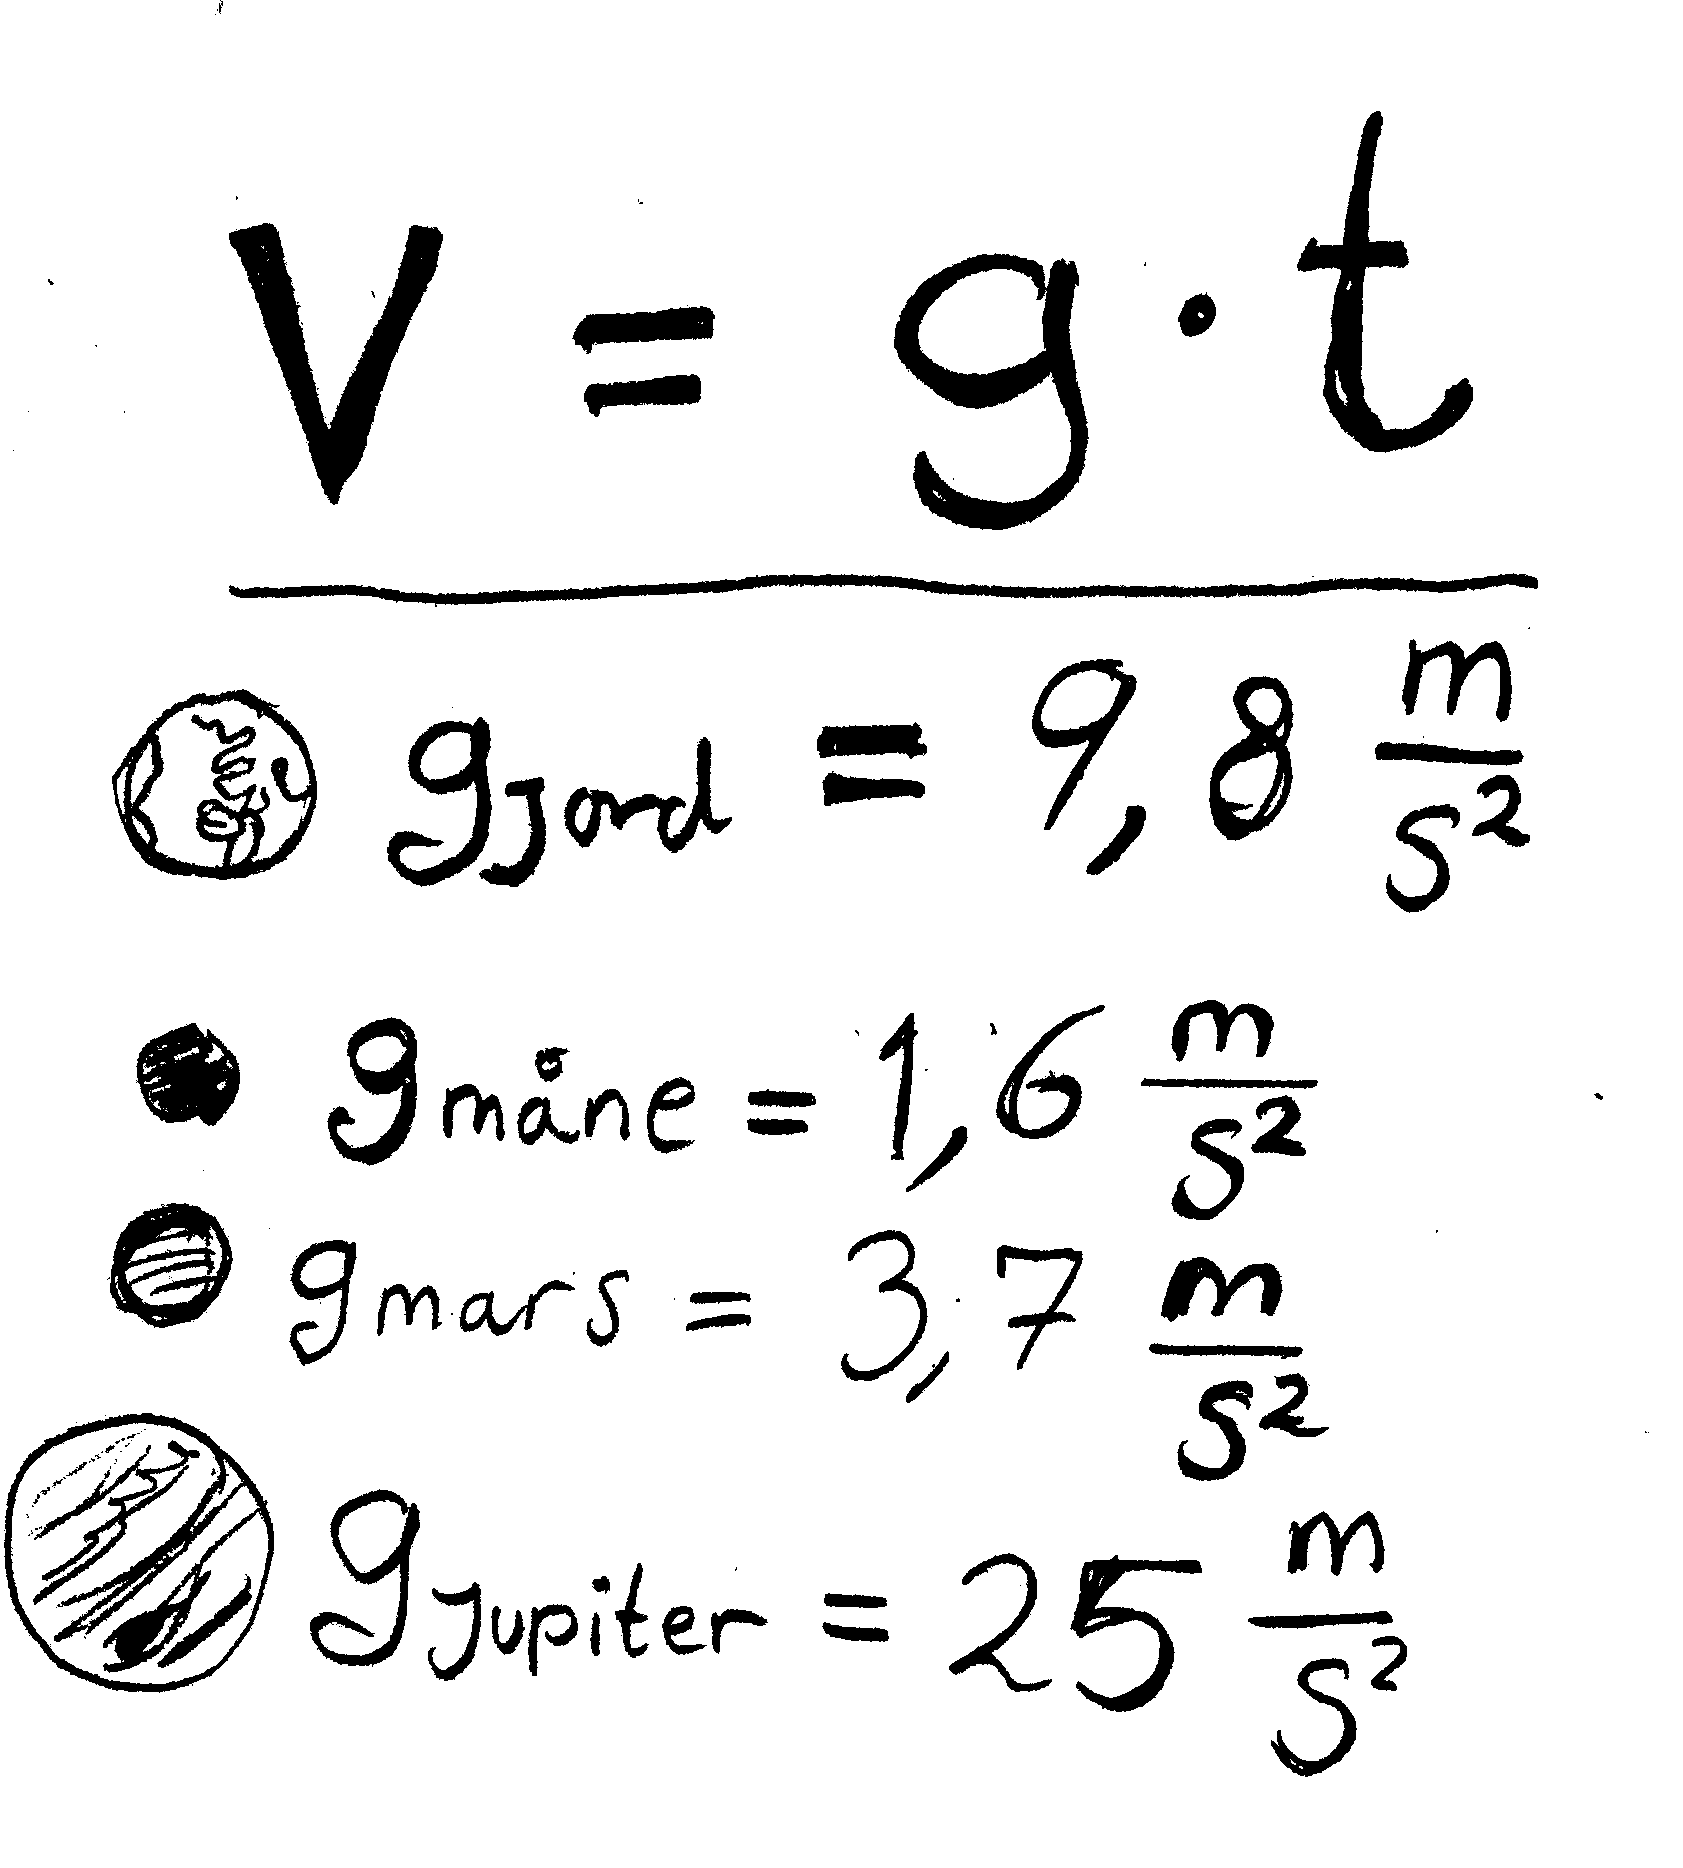 V = g · t
g jord = 9,8 m/s²
g måne = 1,6 m/s²
g mars = 3,7 m/s²
g Jupiter = 25 m/s²